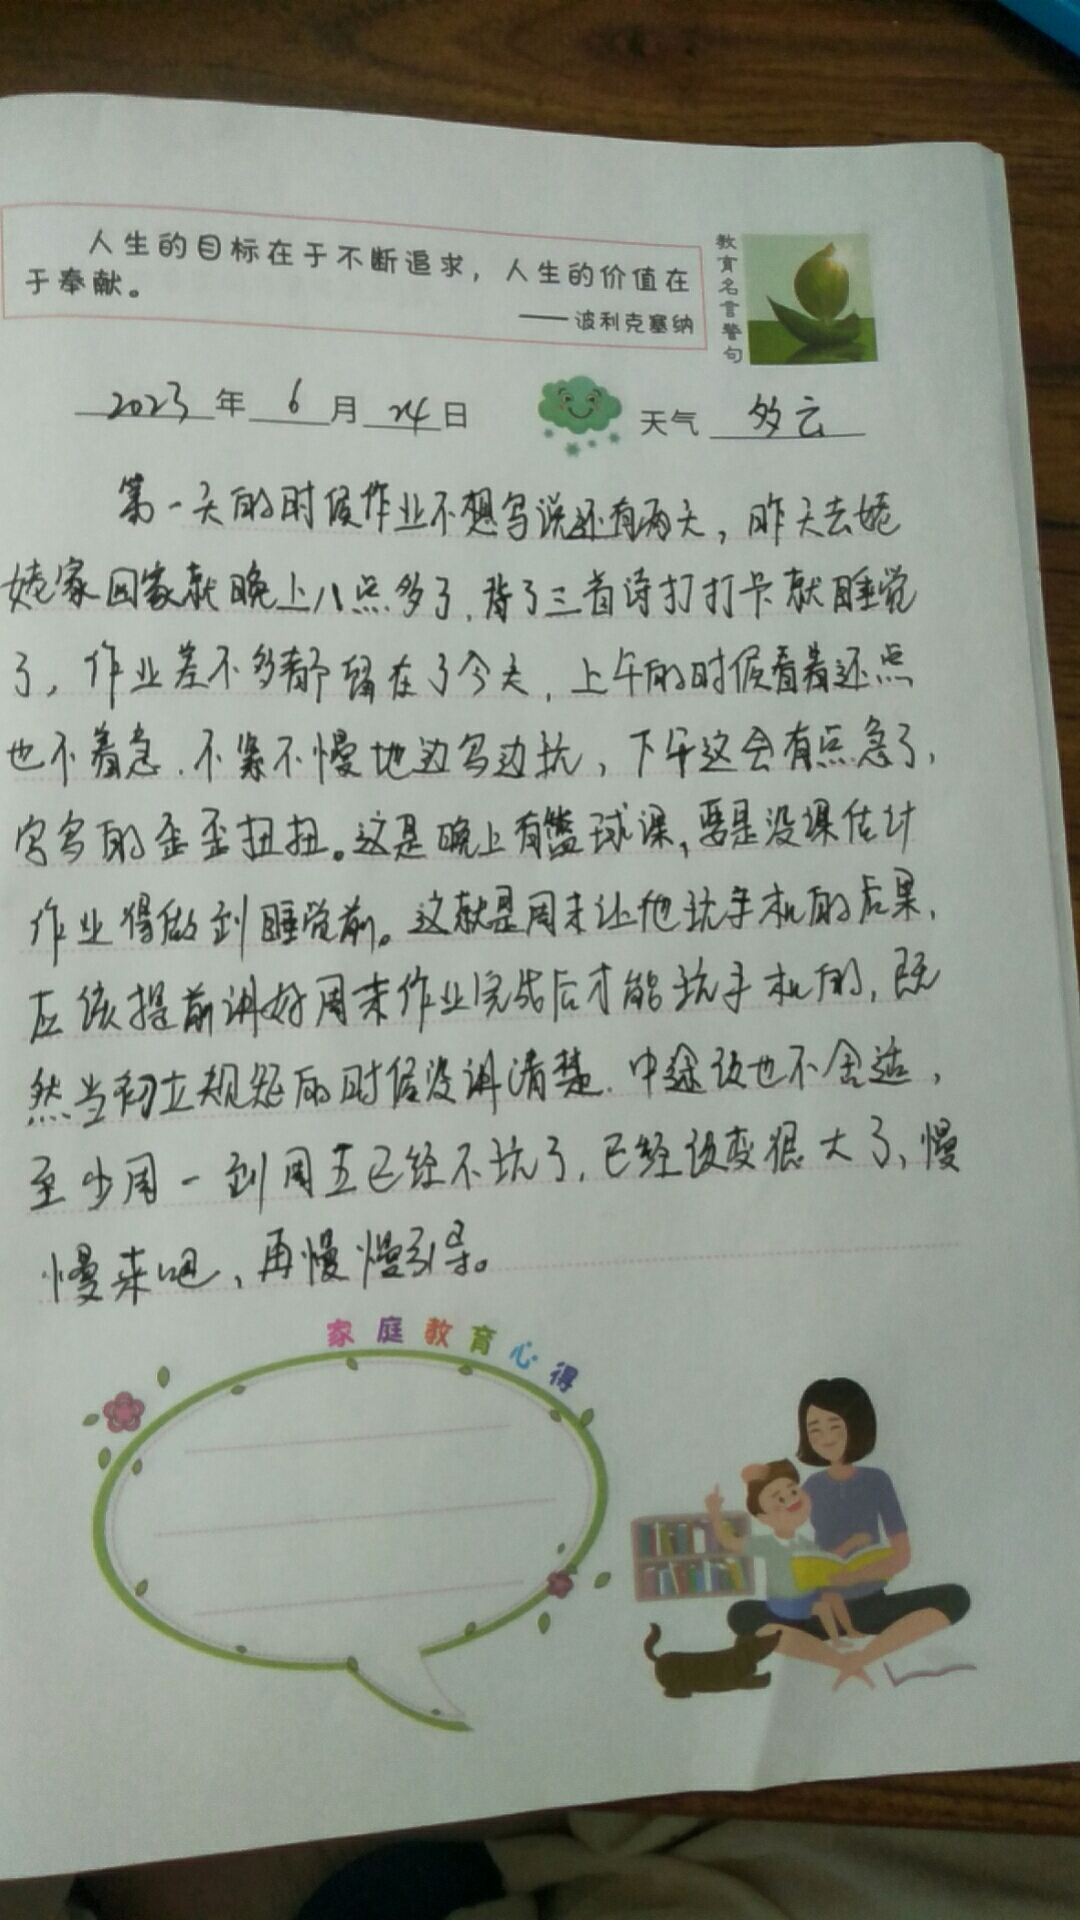 人生的目标在于不断追求，人生的价值在
于奉献。
——波利克塞纳
教育名言警句
2023年6月24日 天气 多云
第一天的时候作业不想写说还有两天，昨天去姥
姥家回家就晚上八点多了，背了三首诗打打卡就睡觉
了，作业差不多都留在了今天，上午的时候看着还点
也不着急，不紧不慢地边写边玩，下午这会有点急了，
字写的歪歪扭扭。这是晚上有篮球课，要是没课估计
作业得做到睡觉前。这就是周末让他玩手机的后果，
应该提前讲好周末作业完成后才能玩手机的，既
然当初立规矩的时候没讲清楚，中途改也不合适，
至少周一到周五已经不玩了，已经改变很大了，慢
慢来吧，再慢慢引导。
家庭教育心得